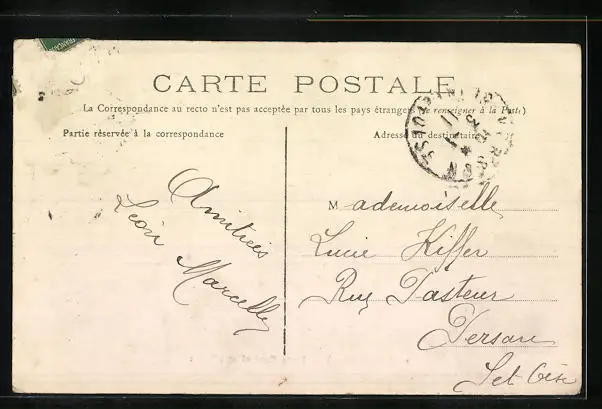 CARTE POSTALE
La Correspondance au recto n'est pas acceptée par tous les pays étrangers (se renseigner à la Poste)
Partie réservée à la correspondance
Adresse du destinataire
Amitiés
Léon Marcelle
Mademoiselle
Lucie Kiffer
Rue Pasteur
Persan
Set Oise